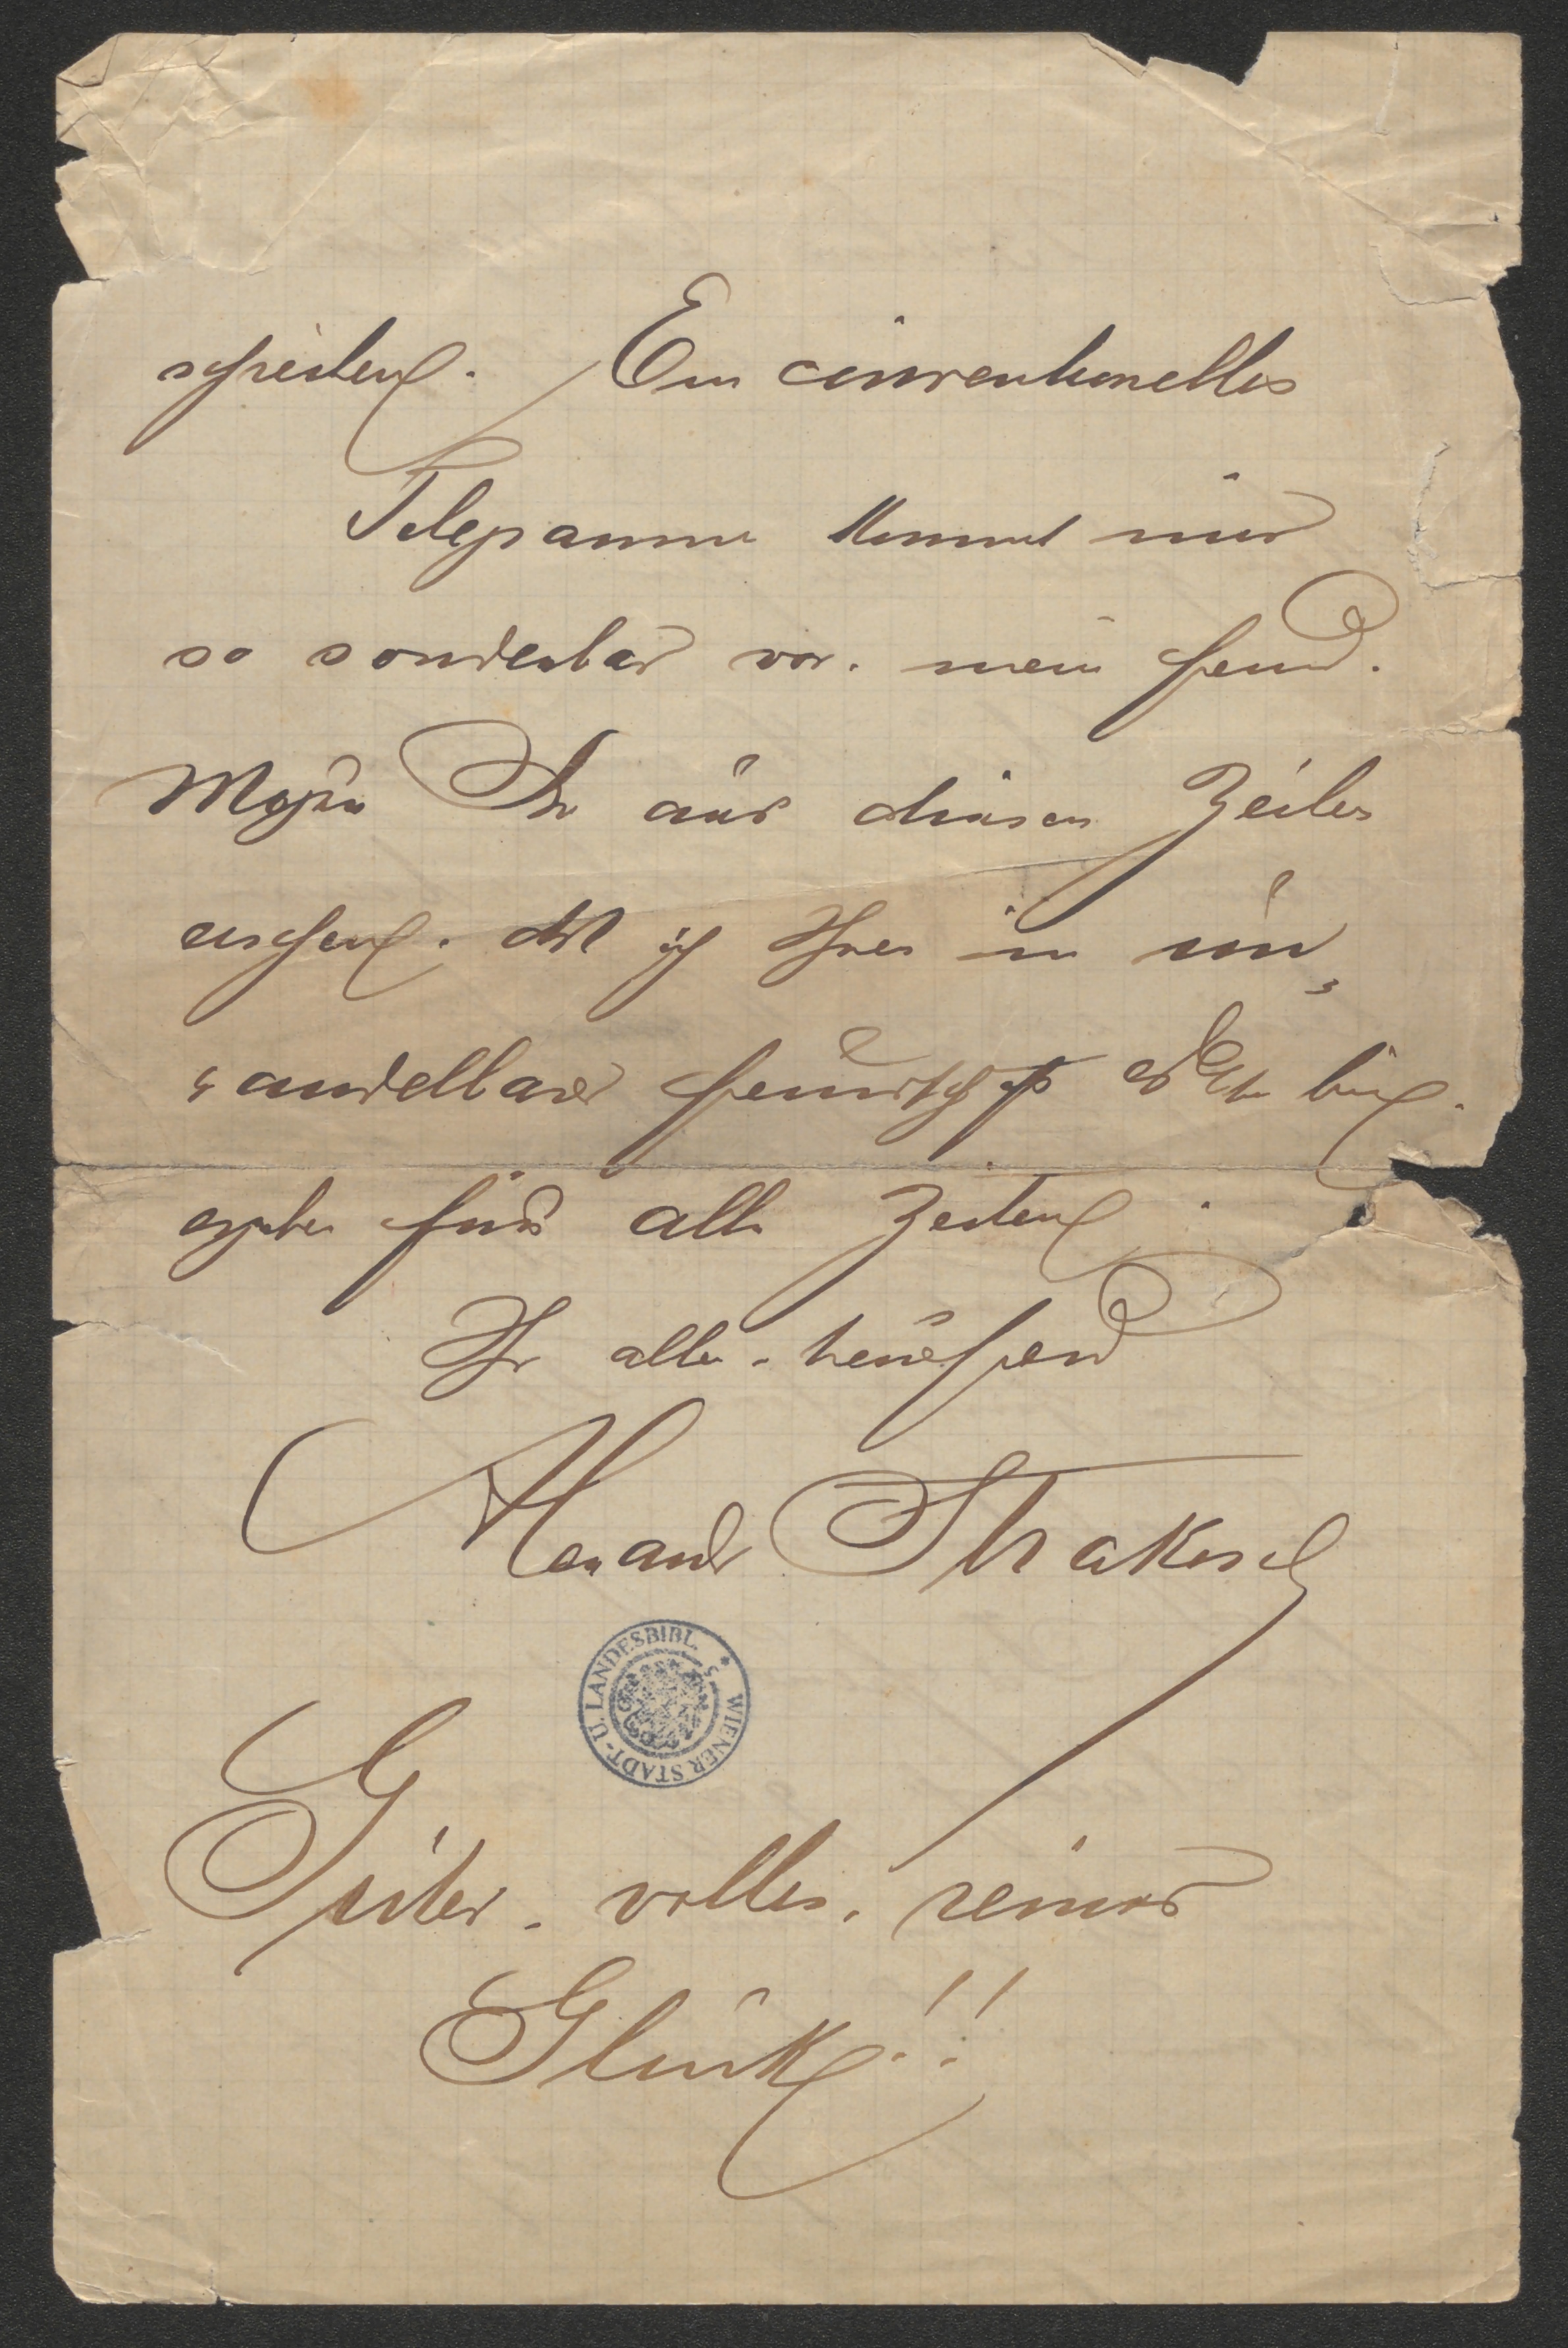 schreiben. Ein conventionelles
Telegramm kommt mir
so sonderbar vor. mein Freund.
Mögen Sie aus diesen Zeilen
ersehen. daß ich Ihnen in un„
wandelbarer Freundschaft bin.
ergeben für alle Zeiten.
Ihr alter. treuer Freund
Alexander Strakosch
WIENER STADT- U. LANDESBIBL.
Guter. volles. reines
Glück!!